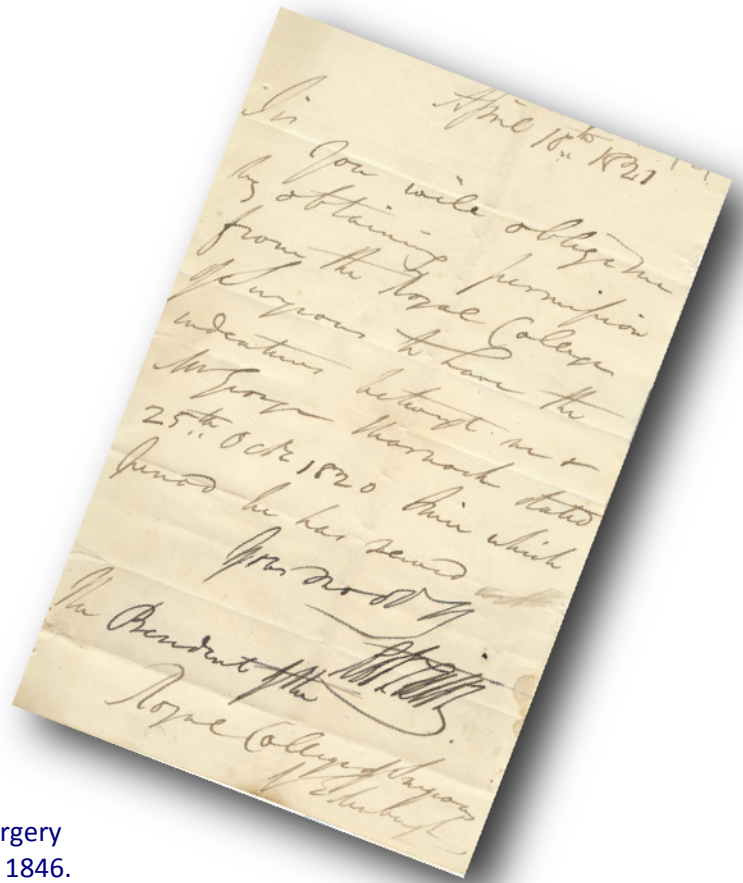 April 18th 1821
Sir
You will oblige me
by obtaining permission
from the Royal College
of Surgeons to have the
indentures betwixt me &
Mr George dated
25th Octr 1820 since which
period he has served
The President of the
Royal College of Surgeons
of Edinburgh
rgery
1846.